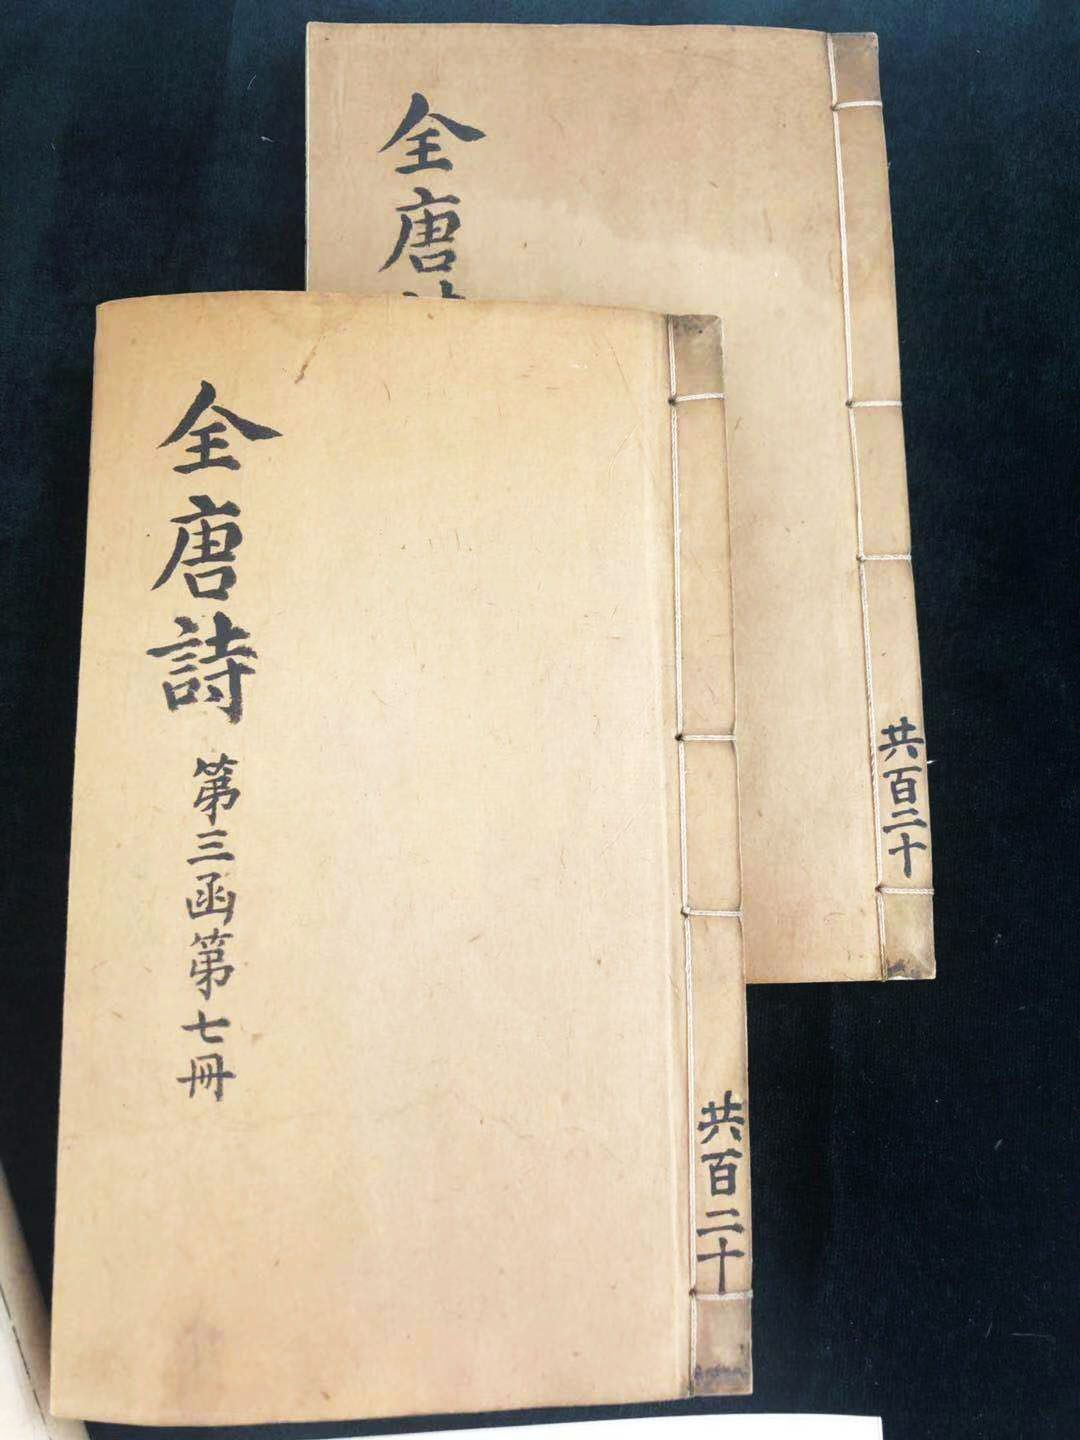 全唐
共百二十
全唐詩 第三函第七冊
共百二十